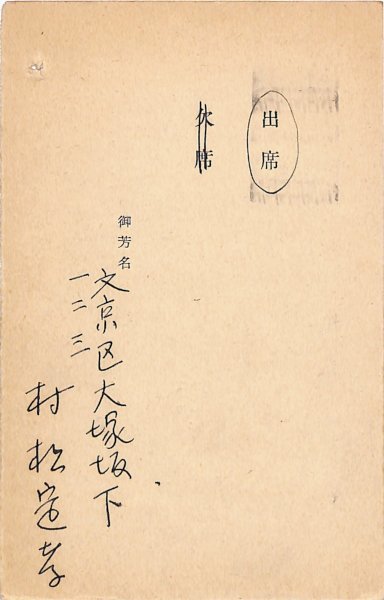 出席
欠席
御芳名
文京区大塚坂下
一二三
村松定孝